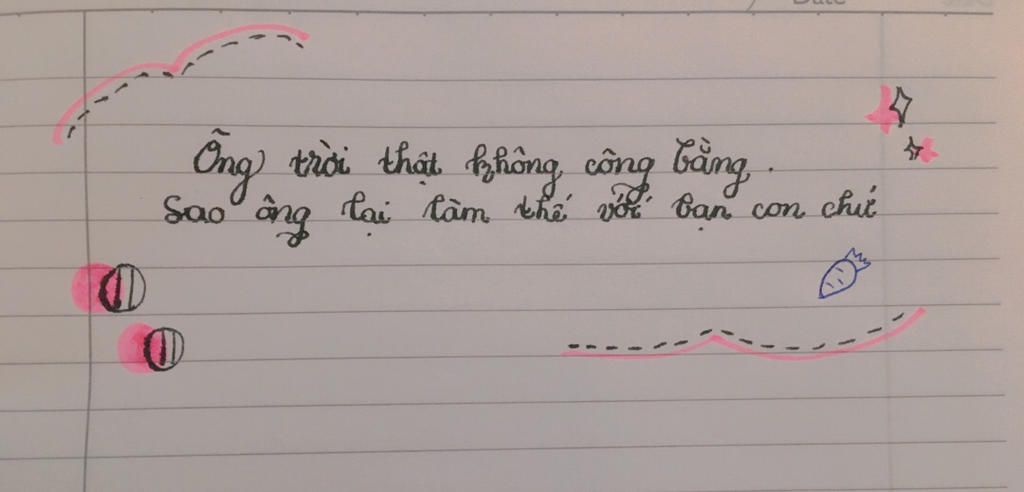 Date
Ông trời thật không công bằng.
Sao ông lại làm thế với bạn con chứ